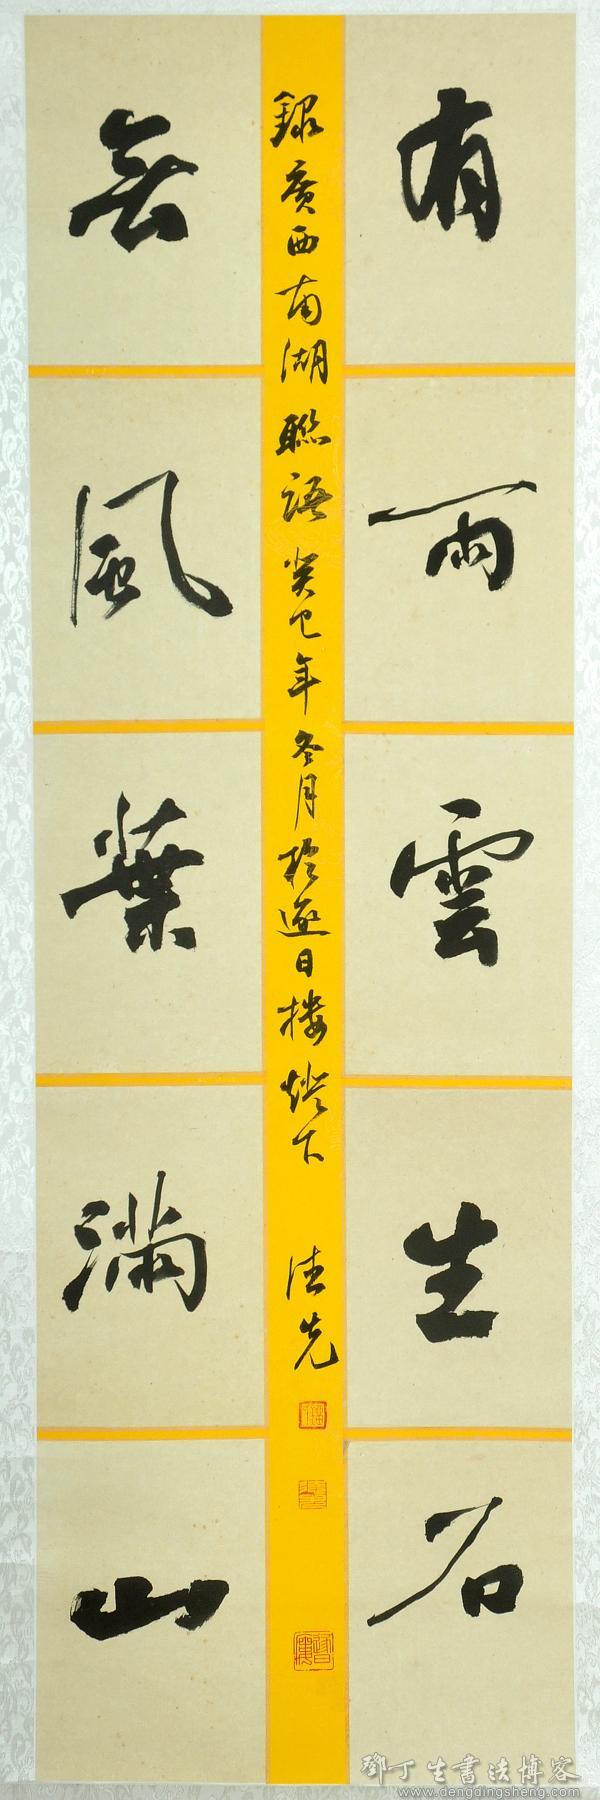 有雨雲生石
無風葉滿山
録廣西南湖聯語癸巳年冬月於逐日樓燈下
德先
鄧丁生書法博客
www.dengdingsheng.com